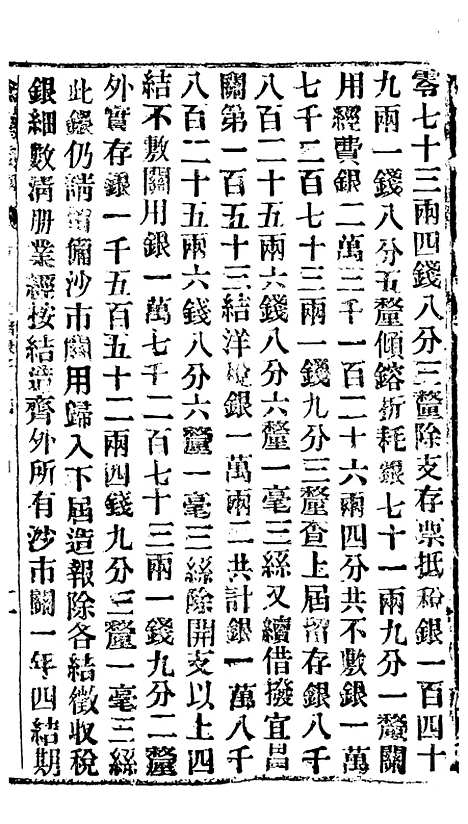 零七十三兩四錢八分三釐除支存票抵稅銀一百四十
九兩一錢八分五釐傾鎔折耗銀七十一兩九分一釐關
用經費銀二萬三千一百二十六兩四分共不敷銀一萬
七千二百七十三兩一錢九分三釐查上届畱存銀八千
八百二十五兩六錢八分六釐一毫三絲又續借撥宜昌
關第一百五十三結洋稅銀一萬兩二共計銀一萬八千
八百二十五兩六錢八分六釐一毫三絲除開支以上四
結不敷關用銀一萬七千二百七十三兩一錢九分二釐
外實存銀一千五百五十二兩四錢九分三釐一毫三絲
此錢仍請畱備沙市關用歸入下届造報除各結徵收稅
銀細數清册業經按結造齊外所有沙市關一年四結期